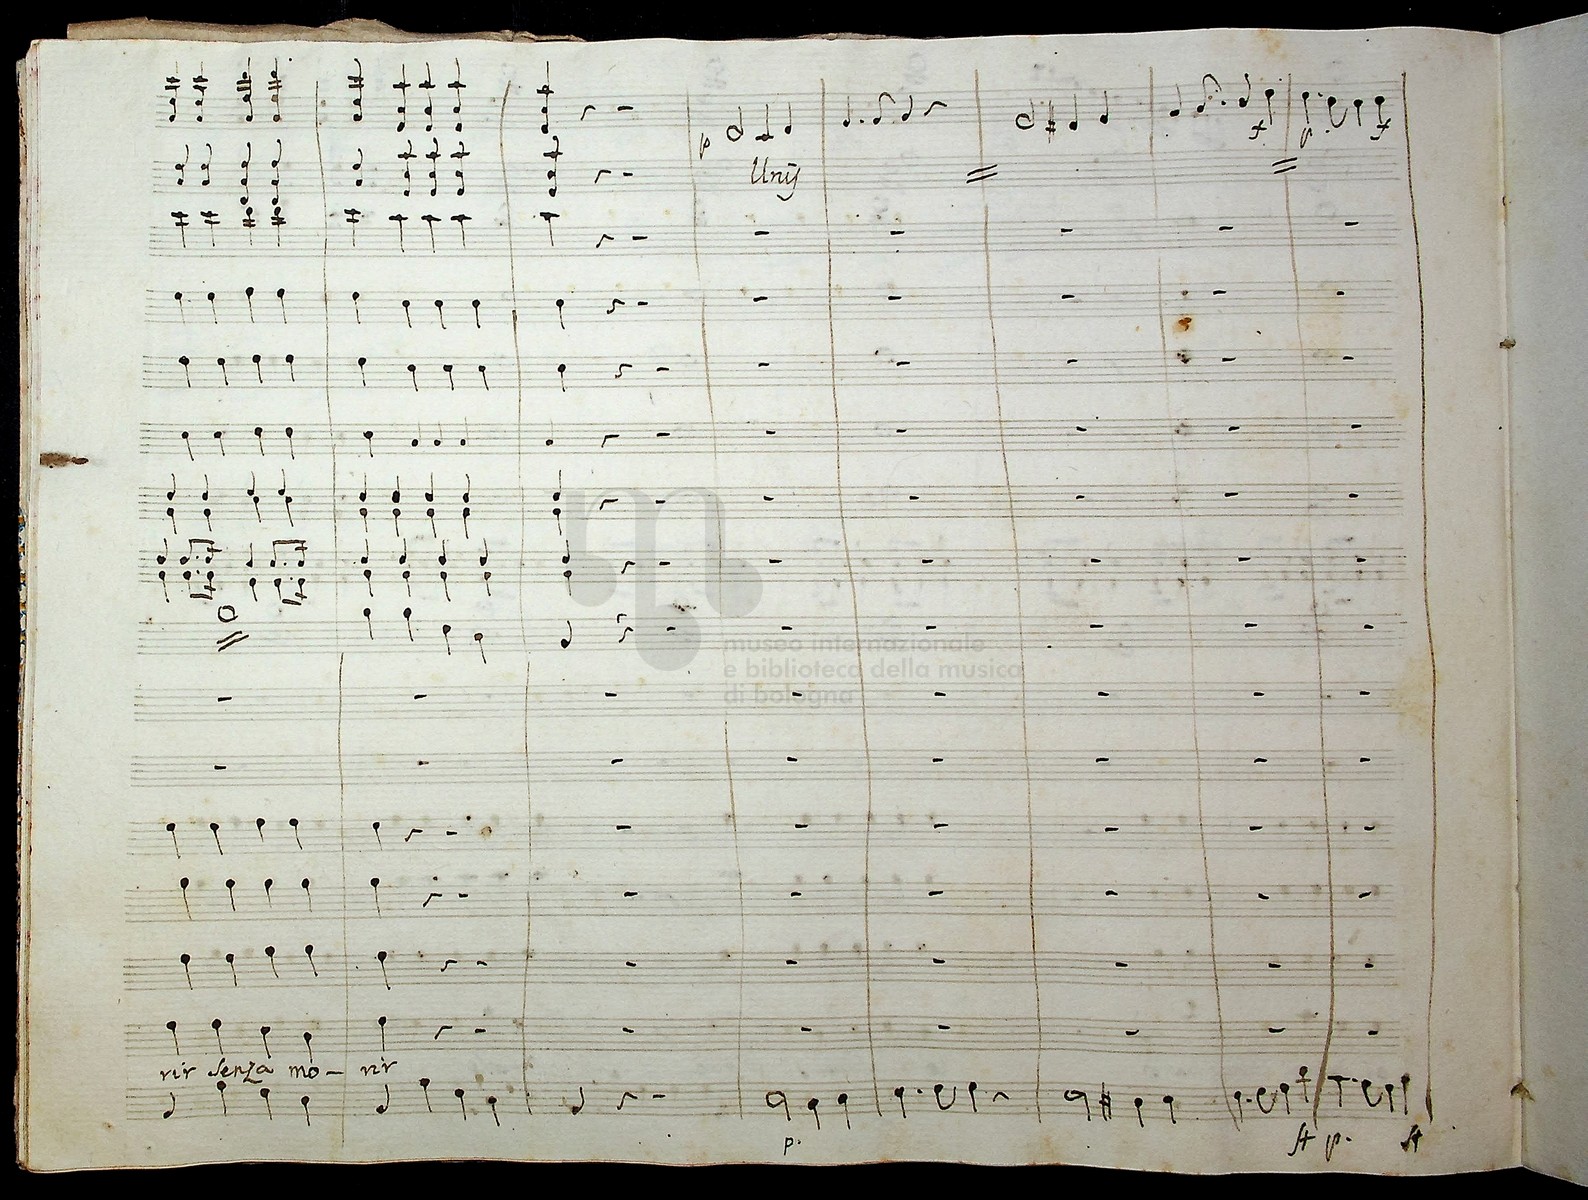 p f p f
Unis
museo internazionale
e biblioteca della musica
di bologna
rir senza mo- rir
p. p.